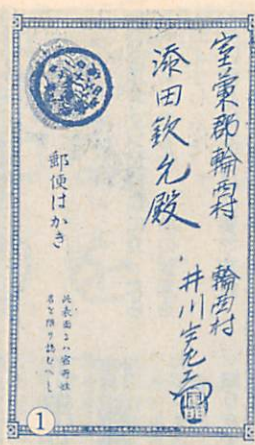 室蘭郡輪西村
添田欽允殿
輪西村
井川
郵便はかき
此表面ニハ宿所姓
名を限り認むへし
1